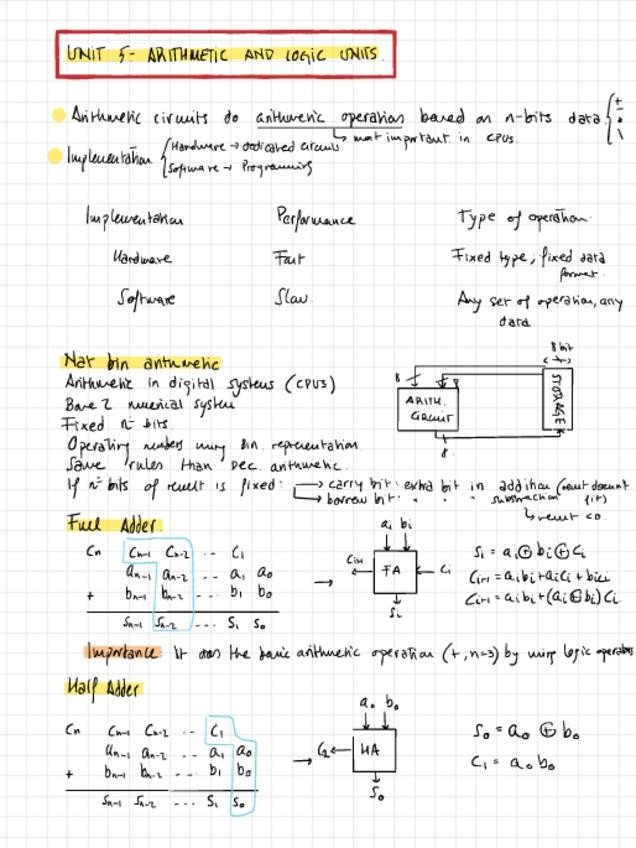 UNIT 5 - ARITHMETIC AND LOGIC UNITS
Arithmetic circuits do arithmetic operation based on n-bits data { + - * \
↳ most important in CPUs
Implementation { Hardware → dedicated circuits
Software → Programming
Implementation Performance Type of operation
Hardware Fast Fixed type, fixed data format.
Software Slow Any set of operation, any data
Nat bin arithmetic
Arithmetic in digital systems (CPUs)
Base 2 numerical system
Fixed nº bits.
Operating numbers using bin. representation.
Same rules than Dec. arithmetic.
If nº bits of result is fixed: → carry bit: extra bit in addition (result doesn't fit)
→ borrow bit: " " " substraction
↳ result < 0
8 bit
8 8
ARITH. CIRCUIT
STORAGE
8
Full Adder
Cn Cn-1 Cn-2 .. C1
an-1 an-2 .. a1 a0
+ bn-1 bn-2 .. b1 b0
Sn-1 Sn-2 ... S1 S0
→
ai bi
Ci+1 ← FA ← Ci
Si
Si = ai ⊕ bi ⊕ Ci
Ci+1 = aibi + aiCi + biCi
Ci+1 = aibi + (ai ⊕ bi) Ci
Importance: It does the basic arithmetic operation (+, n=3) by using logic operators
Half Adder
Cn Cn-1 Cn-2 .. C1
an-1 an-2 .. a1 a0
+ bn-1 bn-2 ... b1 b0
Sn-1 Sn-2 ... S1 S0
→
a0 b0
C2 ← HA
S0
S0 = a0 ⊕ b0
C1 = a0b0